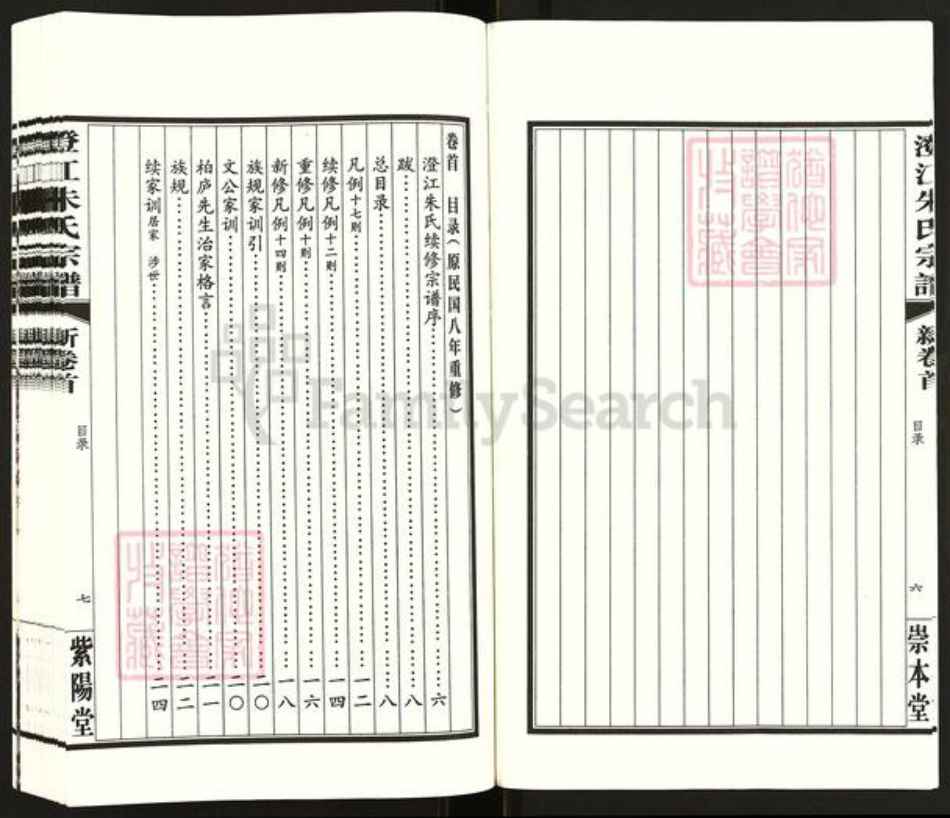 澄江朱氏宗譜
新卷首
目录
六
崇本堂
卷首 目录（原民国八年重修）
澄江朱氏续修宗谱序……六
跋……八
总目录……八
凡例十七则……一二
续修凡例十二则……一四
重修凡例十则……一六
新修凡例十四则……一八
族规家训引……二〇
文公家训……二〇
柏庐先生治家格言……二一
族规……二二
续家训居家 涉世……二四
澄江朱氏宗谱
新卷首
目录
七
紫陽堂
FamilySearch